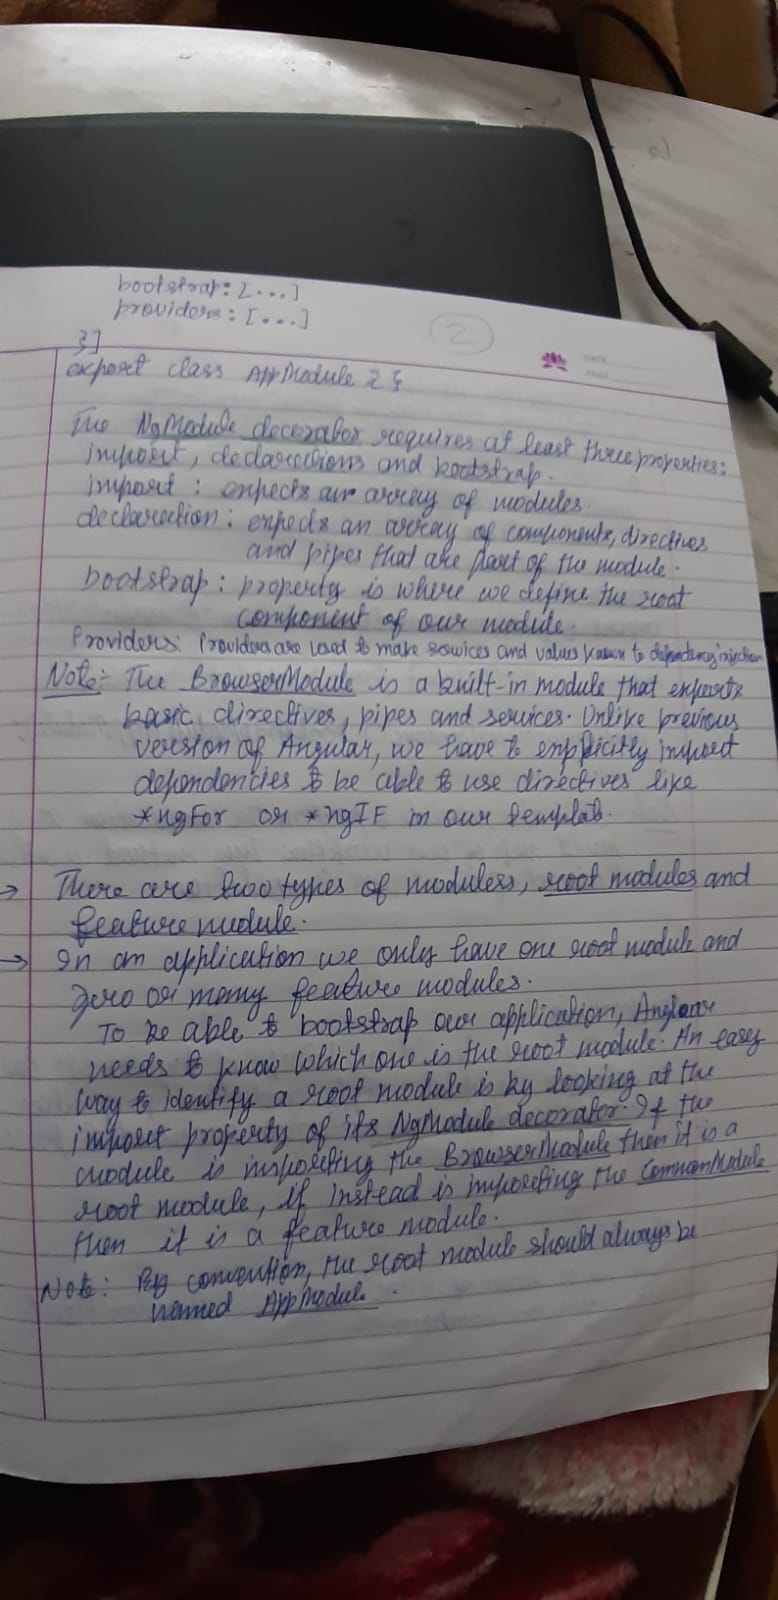 bootstrap: [...]
providers: [...]
2
}]
DATE
PAGE
export class AppModule { }
The NgModule decorator requires at least three properties:
import, declarections and bootstrap.
import : expects an array of modules.
declarection : expects an array of components, directives
and pipes that are part of the module.
bootstrap : property is where we define the root
component of our module.
Providers: Providers are used to make services and values known to dependency injection
Note:- The BrowserModule is a built-in module that exports
basic directives, pipes and services. Unlike previous
version of Angular, we have to explicitly import
dependencies to be able to use directives like
*ngFor or *ngIF in our template.
→ There are two types of modulers, root modules and
feature module.
→ In an application we only have one root module and
zero or many feature modules.
To be able to bootstrap our application, Angloar
needs to know which one is the root module. An easy
way to identify a root module is by looking at the
import property of its NgModule decorator. If the
module is importing the BrowserModule then it is a
root module, if instead is importing the CommonModule
then it is a feature module.
Note: By convention, the root module should always be
named AppModule.